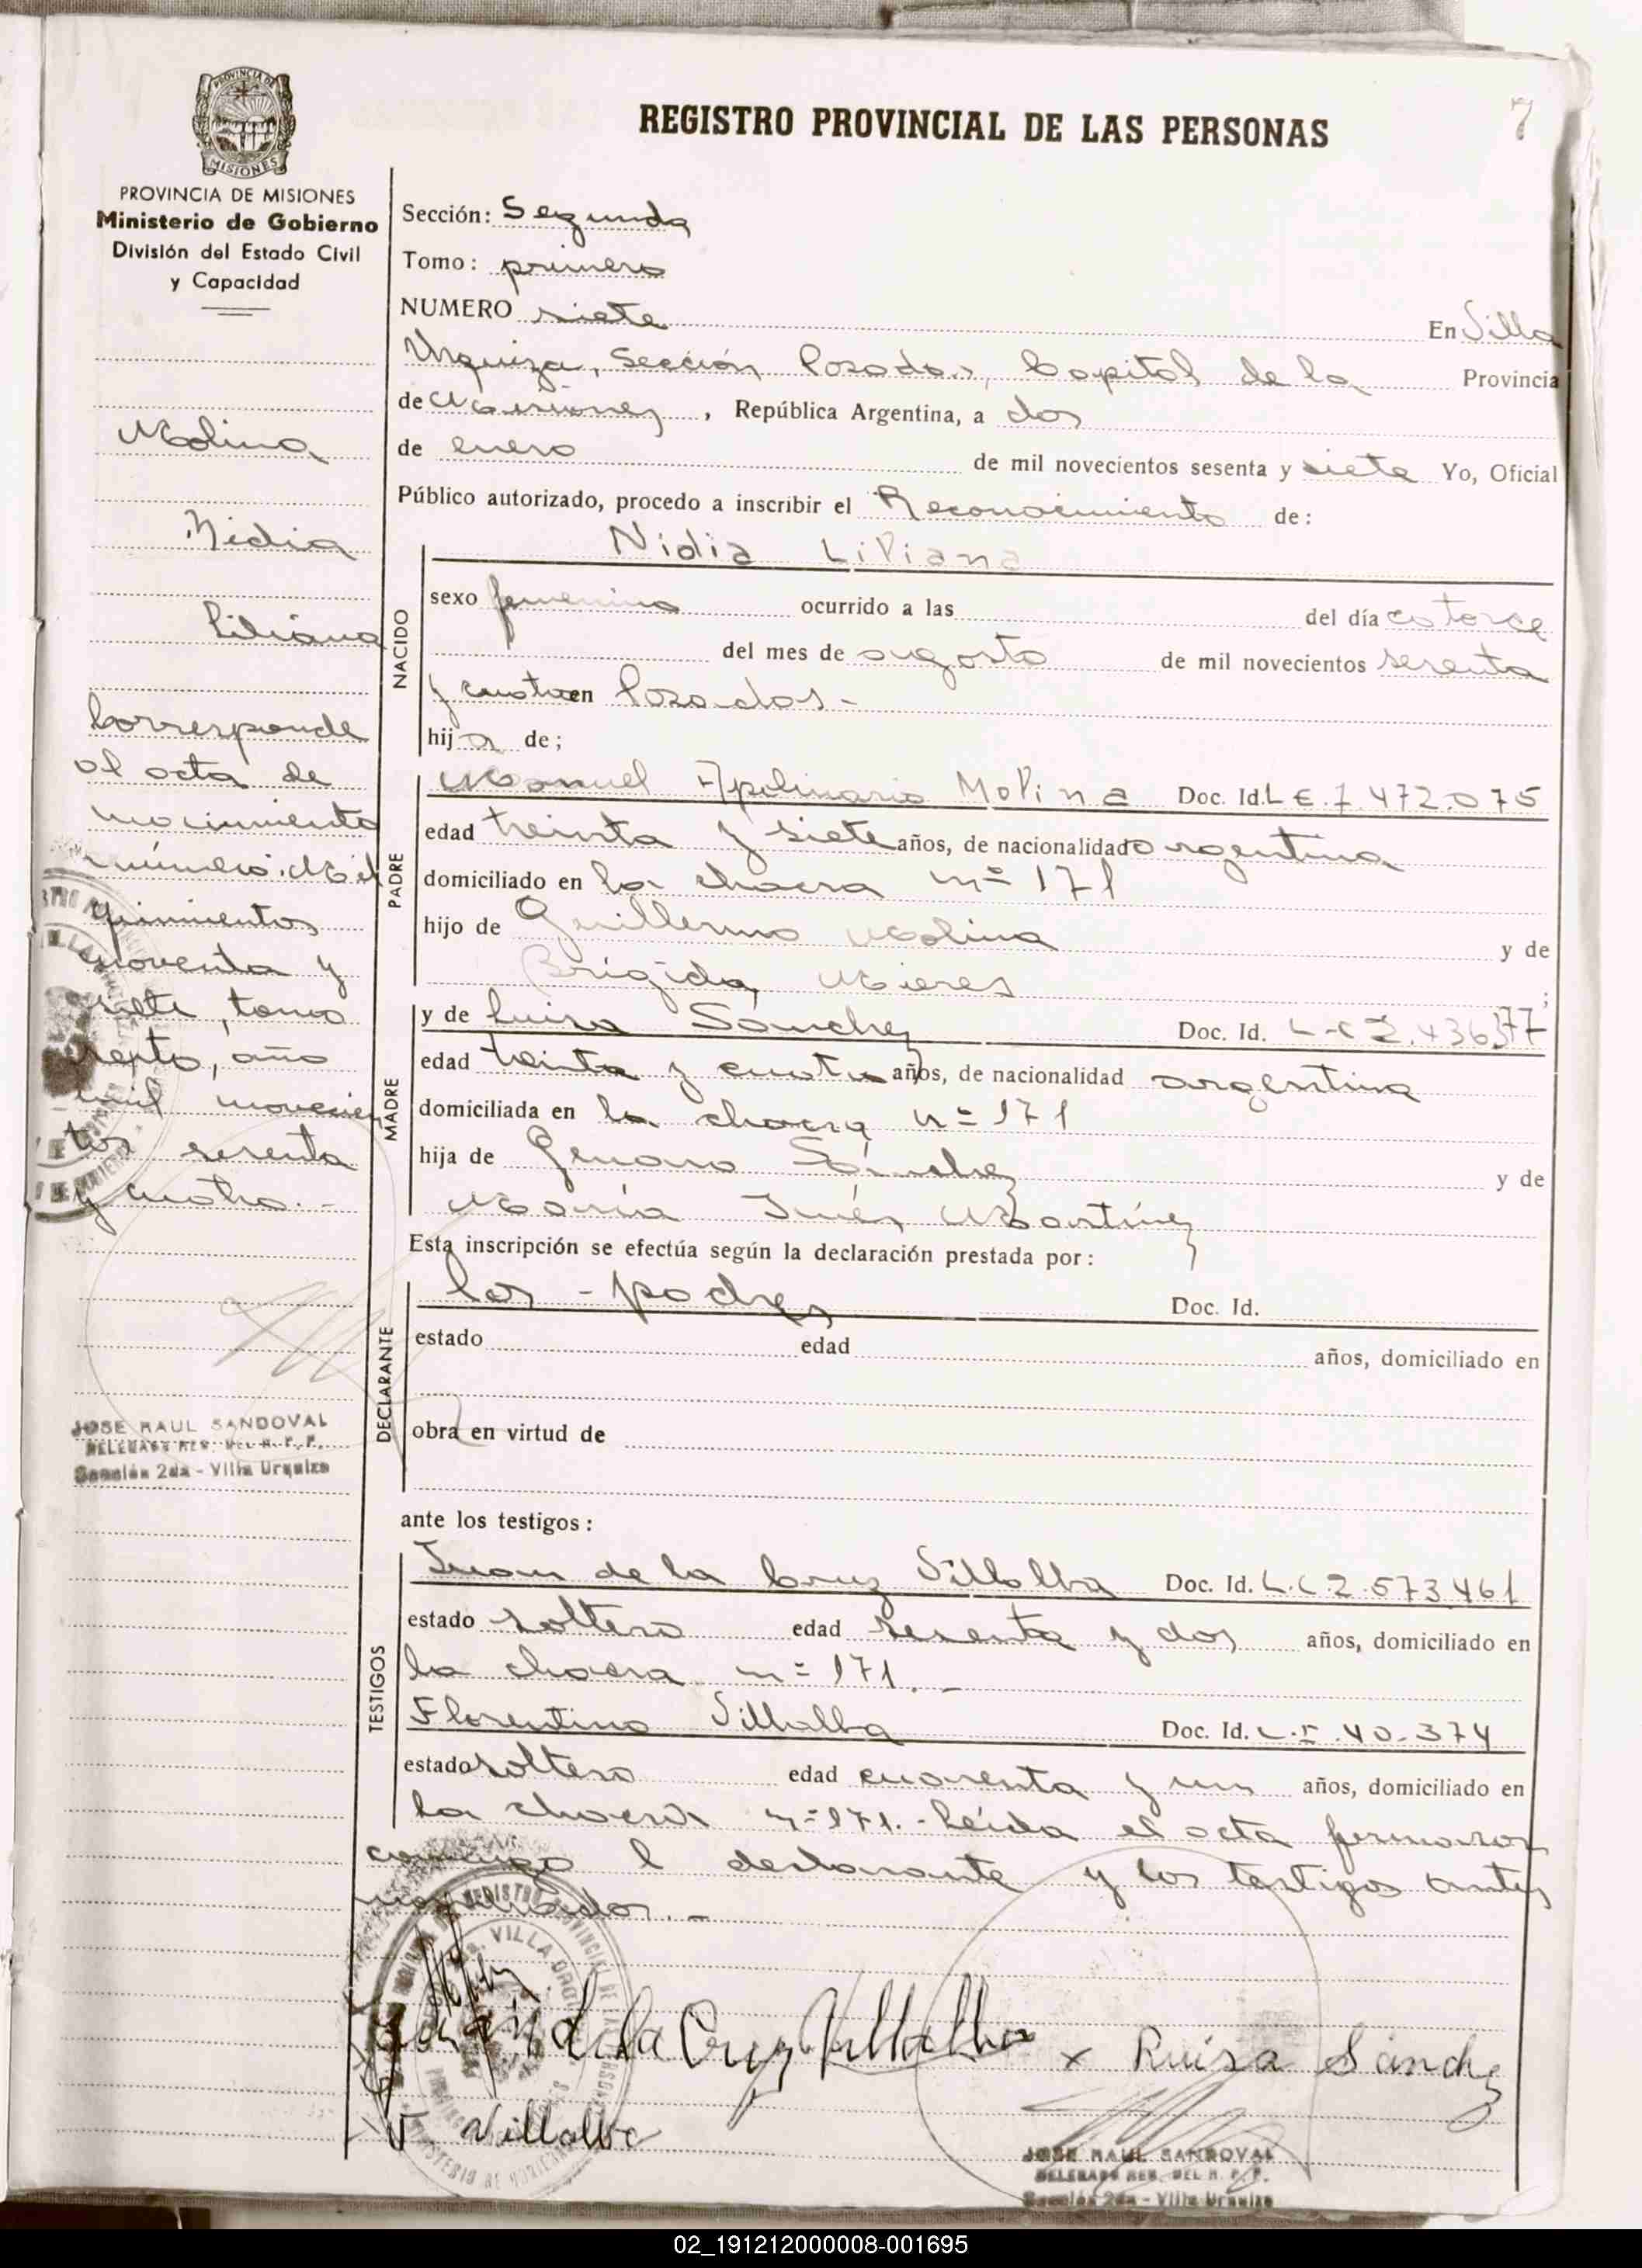 7
REGISTRO PROVINCIAL DE LAS PERSONAS
PROVINCIA DE
MISIONES
PROVINCIA DE MISIONES
Ministerio de Gobierno
División del Estado Civil
y Capacidad
Molina
Nidia
Liliana
Corresponde
al acta de
nacimiento
número: Mil
quinientos
noventa y
siete, tomo
sexto, año
mil novecien
tos sesenta
y cuatro.-
JOSE RAUL SANDOVAL
Sección 2da - Villa Urquiza
Sección: Segunda
Tomo: primero
NUMERO siete En Villa
Urquiza, Sección Posadas, Capital de la Provincia
de Misiones, República Argentina, a dos
de enero de mil novecientos sesenta y siete Yo, Oficial
Público autorizado, procedo a inscribir el Reconocimiento de:
NACIDO
Nidia Liliana
sexo femenino ocurrido a las del día catorce
del mes de agosto de mil novecientos sesenta
y cuatro en Posadas.-
hija de;
PADRE
Manuel Apolinario Molina Doc. Id. L E. 7.472.075
edad treinta y siete años, de nacionalidad argentina
domiciliado en la chacra nº 171
hijo de Guillermo Molina y de
Brígida Mieres ;
MADRE
y de Luisa Sánchez Doc. Id. L-C 2.436377
edad treinta y cuatro años, de nacionalidad argentina
domiciliada en la chacra nº 171
hija de Genaro Sánchez y de
María Inés Martínez
Esta inscripción se efectúa según la declaración prestada por:
DECLARANTE
los - padres Doc. Id.
estado edad años, domiciliado en
obra en virtud de
ante los testigos:
TESTIGOS
Juan de la Cruz Villalba Doc. Id. L.C 2.573.461
estado soltero edad sesenta y dos años, domiciliado en
la chacra nº 171.-
Florentino Villalba Doc. Id. L.E. 40.374
estado soltero edad cuarenta y un años, domiciliado en
la chacra nº 171.- Leída el acta firmaron
conmigo l declarante y los testigos antes
nombrados.-
de la Cruz Villalba x Ruisa Sánchez
F. Villalba
JOSE RAUL SANDOVAL
Sección 2da - Villa Urquiza
02_191212000008-001695